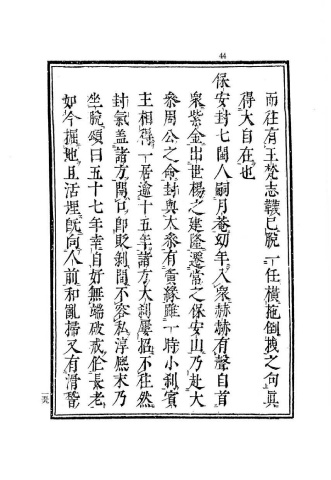 44
而往有王梵志韈已脫一任橫拖倒拽之句眞
得大自在也
保安封七閩人嗣月菴幼年入衆赫赫有聲自首
衆紫金出世楊之建隆遷當之保安山乃赴大
參周公之命封與大參有夤緣雖一時小刹賓
主相得一居逾十五年諸方大刹屢招不往然
封氣蓋諸方開口郎貶剥間不容私淳熈末乃
坐脫頌曰五十七年幸自好無端破戒作長老
如今掘地且活埋旣向人前和亂掃又有滑